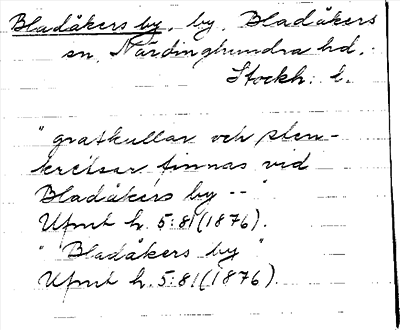 Bladåkers by, by, Bladåkers
sn, Närdinghundra hd,
Stockh: l.
"grafkullar och sten-
kretsar finnas vid
Bladåkers by --"
Ufmt h. 5:81 (1876).
"Bladåkers by"
Ufmt h. 5:81 (1876).